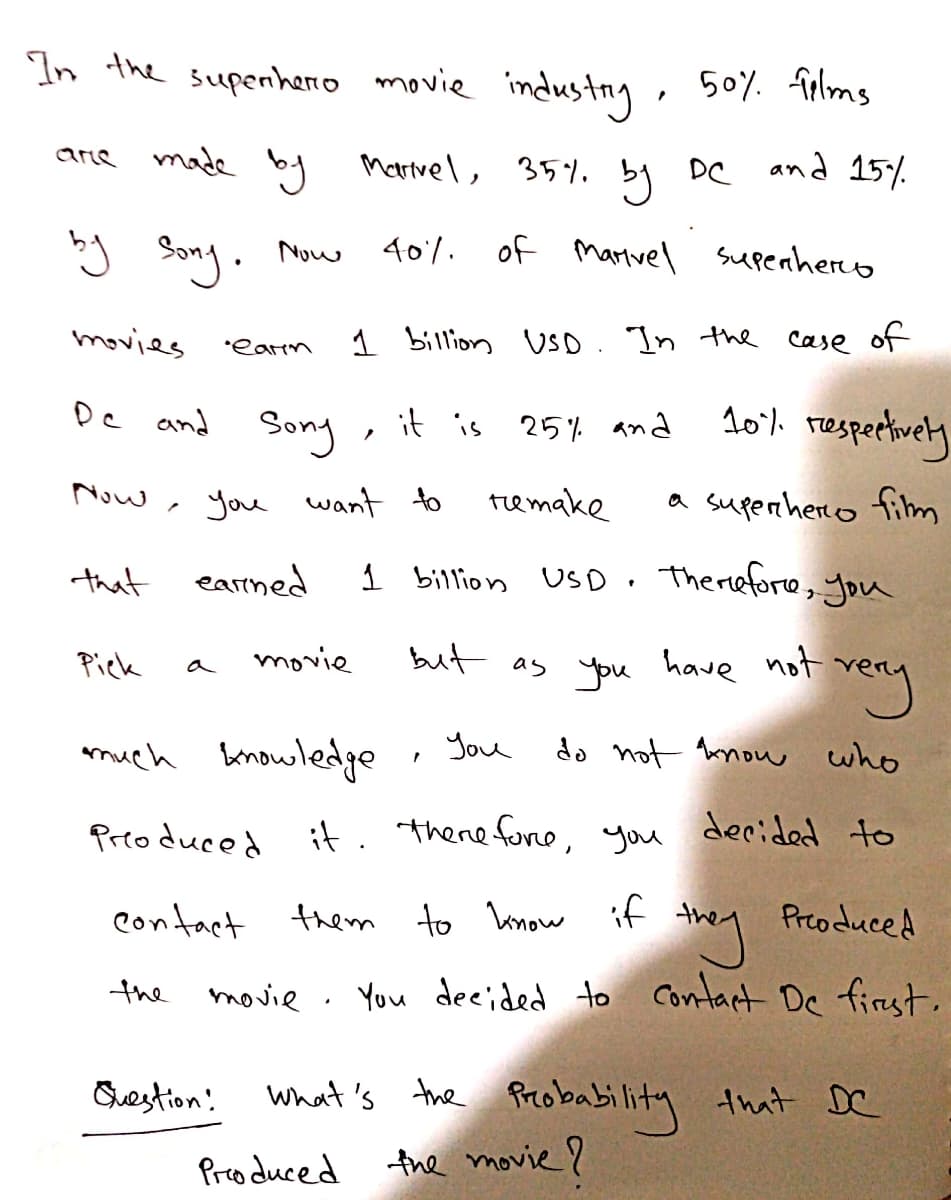 In the superhero movie industry, 50% films
are made by Marvel, 35% by DC and 15%
by Sony. Now 40% of Marvel superhero
movies earn 1 billion USD. In the case of
Dc and Sony, it is 25% and 10% respectively
Now, you want to remake a superhero film
that earned 1 billion USD. Therefore, you
Pick a movie but as you have not very
much knowledge, You do not know who
Produced it. Therefore, you decided to
contact them to know if they Produced
the movie. You decided to Contact Dc first.
Question: What's the Probability that DC
Produced the movie?